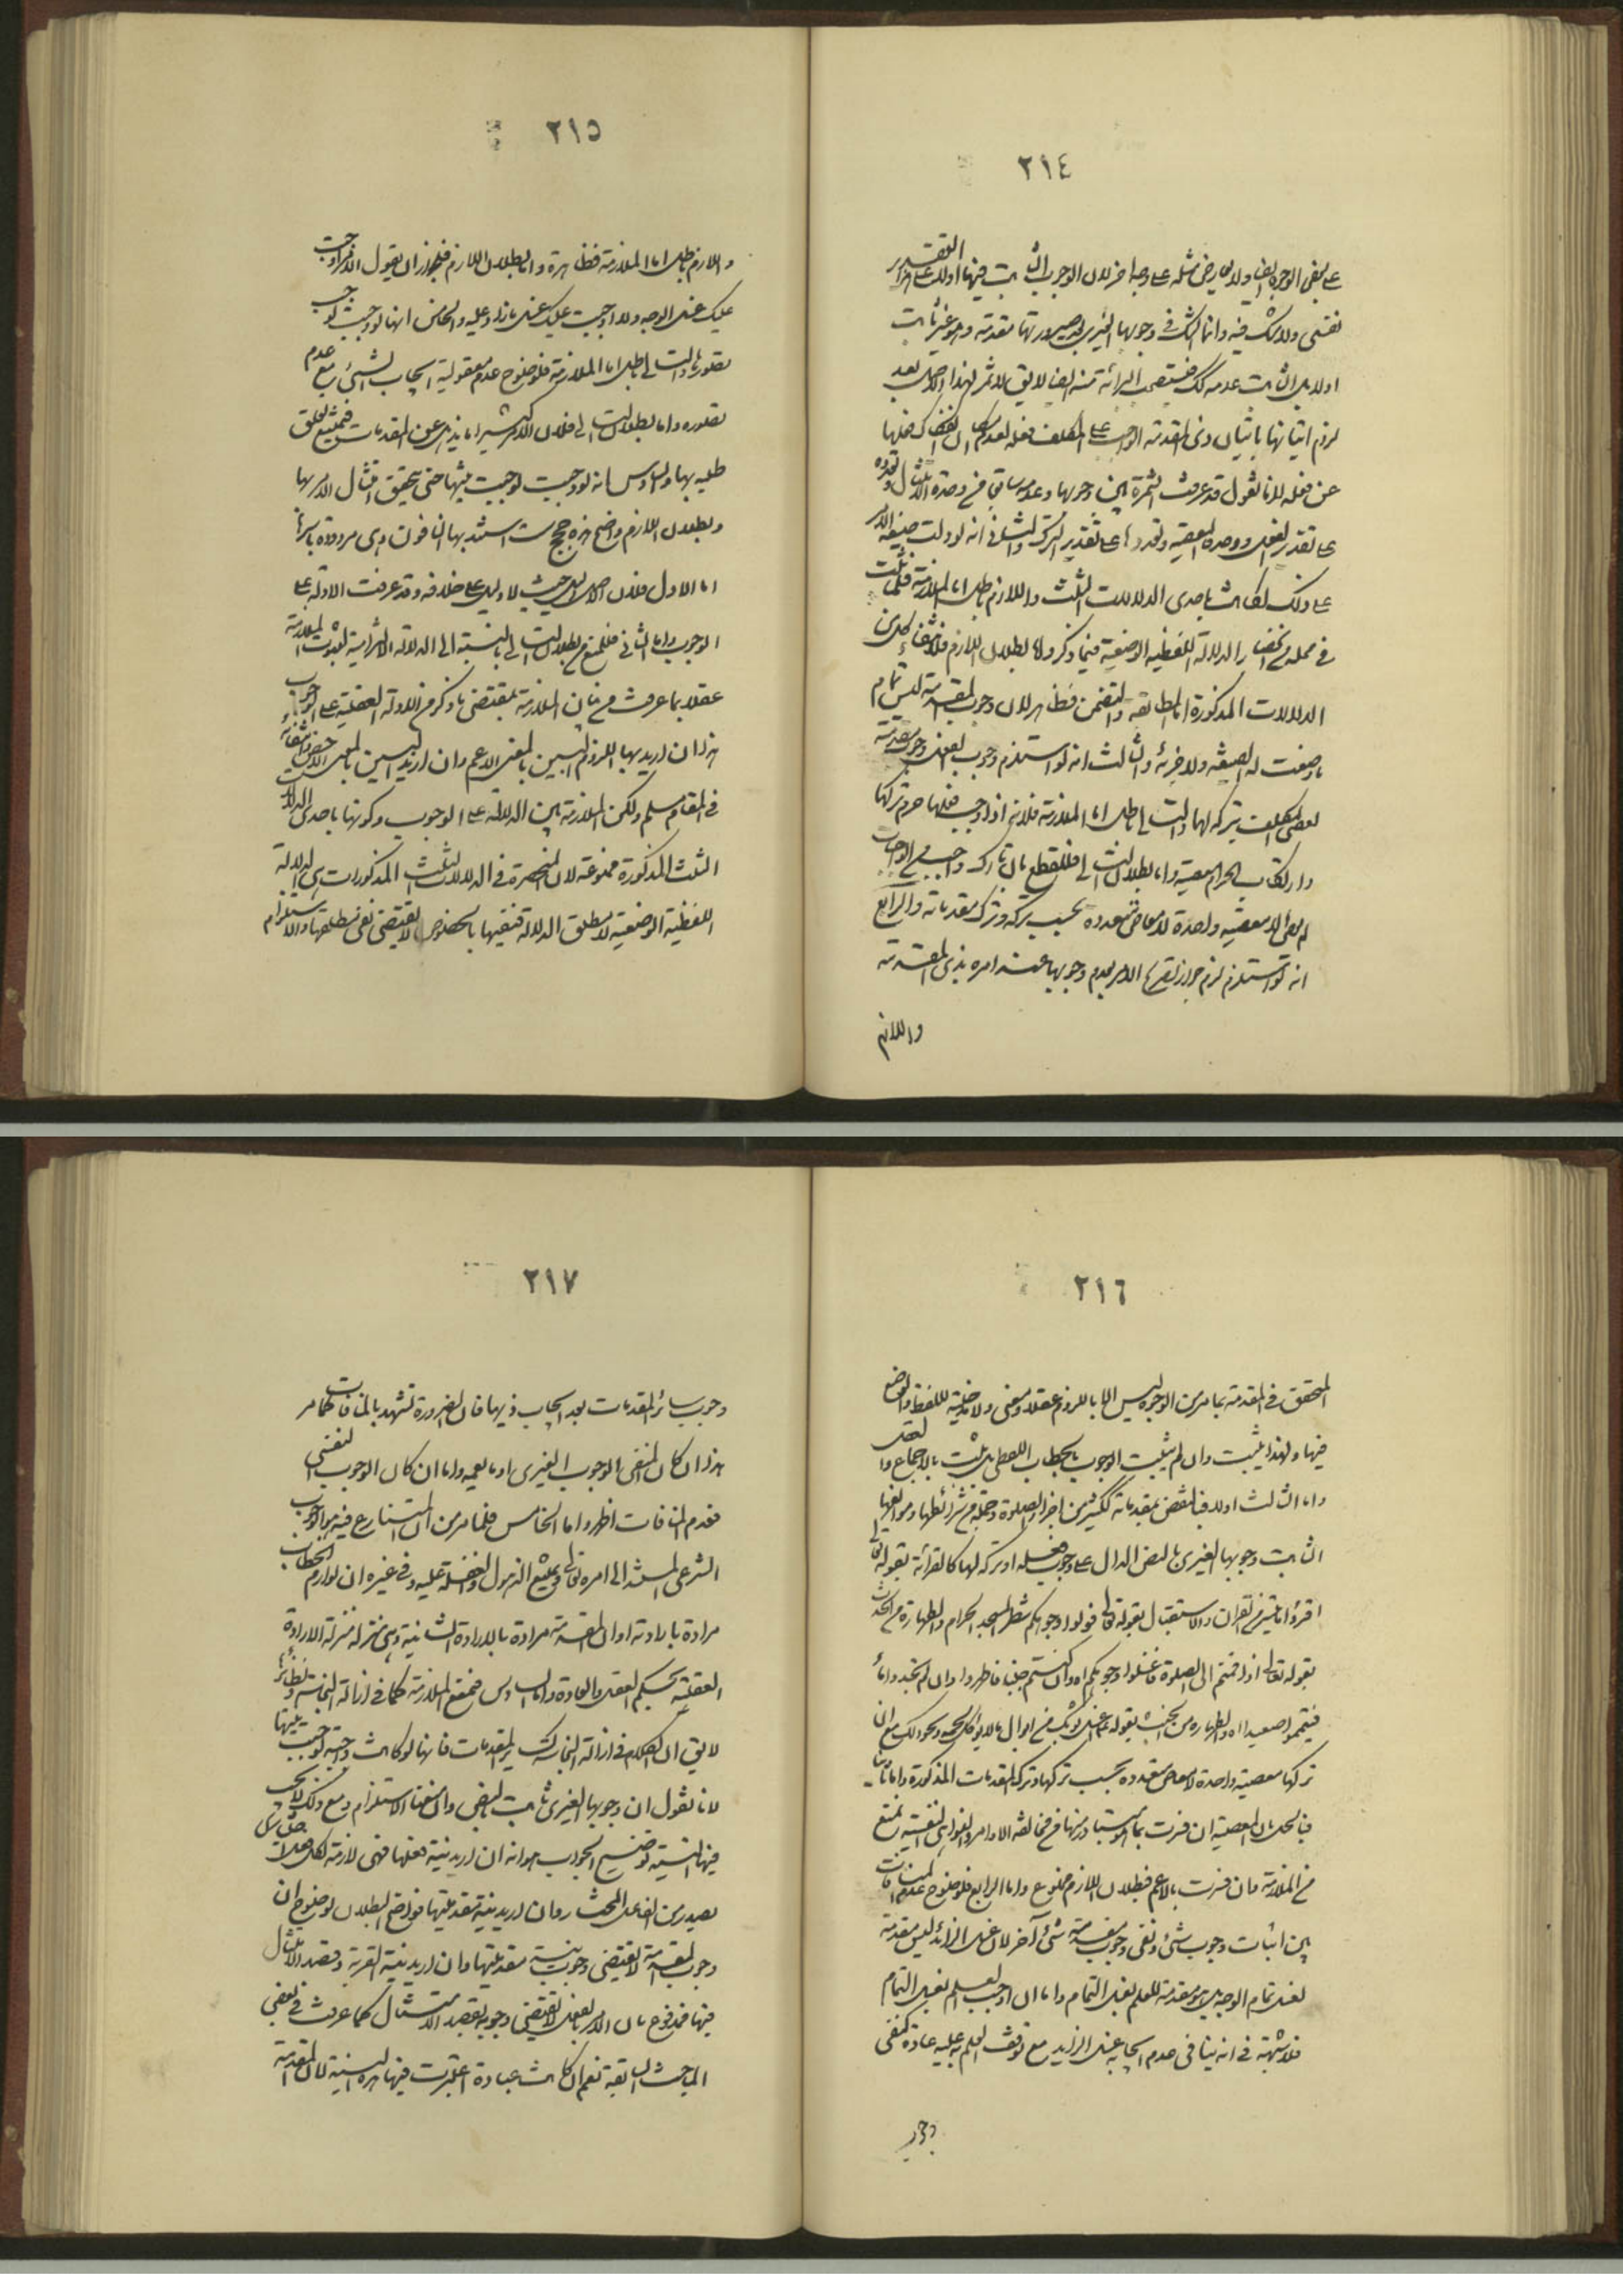 ٢١٤
نفسى ولا شك فيه وانما الشك فى وجوبها الغيرى بعد صيرورتها مقدمة وهو غير ثابت
عن فعله لانا نقول قد عرفت الثمرة بين وجوبها وعدمه سابقا من وحدة الامتثال وتعدده
على تقدير الفعل ووحدة المعصية وتعددها على تقدير الترك والثانى انه لو دلت صيغة الامر
على ذلك لكانت باحدى الدلالات الثلث واللازم باطل اما الملازمة فلما ثبت
فى محله من انحصار الدلالة اللفظية الوضعية فيما ذكر واما بطلان اللازم فلانتفاء كل من
الدلالات المذكورة اما المطابقة والتضمن فظاهر لان وجوب المقدمة ليس تمام
ما وضعت له الصيغة ولا جزئه والثالث انه لو استلزم وجوب الفعل وجوب مقدمته
لعصى المكلف بتركه لها والتالى باطل اما الملازمة فلانه اذا وجب فعلها حرم تركها
وارتكاب الحرام معصية واما بطلان التالى فللقطع بان تارك واجب من الواجبات
لم يعص الا معصية واحدة لا معاصى متعددة بحسب تركه وترك مقدماته والرابع
انه لو استلزم لزم جواز تصريح الامر بعدم وجوبها عند امره بذى المقدمة
واللازم
٢١٥
واللازم باطل اما الملازمة فظاهرة واما بطلان اللازم فلجواز ان يقول الامر اوجبت
عليك غسل الوجه ولا اوجبت عليك غسل ما زاد عليه والخامس انها لو وجبت لوجب
تصورها والتالى باطل اما الملازمة فلوضوح عدم معقولية ايجاب الشيئ مع عدم
تصوره واما بطلان التالى فلان الامر كثيرا ما يذهل عن المقدمات فيمتنع تعلق
طلبه بها والسادس انه لو وجبت لوجبت نيتها حتى يتحقق امتثال الامر بها
وبطلان اللازم واضح هذه حجج ست استند بها النافون وهى مردودة باسرها
اما الاول فلان الاصل دليل حيث لا دليل على خلافه وقد عرفت الادلة على
الوجوب واما الثانى فلمنع بطلان التالى بالنسبة الى الدلالة الالتزامية لثبوت الملازمة
عقلا بما عرفت من بيان الملازمة بمقتضى ما ذكر من الادلة العقلية على الوجوب
هذا ان اريد بها اللزوم البين بالمعنى الاعم وان اريد البين بالمعنى الاخص فانتفائه
فى المقام مسلم ولكن الملازمة بين الدلالة على الوجوب وكونها باحدى الدلالات
الثلث المذكورة ممنوعة لان المنحصرة فى الدلالات الثلث المذكورات هى الدلالة
اللفظية الوضعية لا مطلق الدلالة فنفيها بالخصوص لا يقتضى نفى مطلقها والاستلزام
٢١٦
المتحقق فى المقدمة بما مر من الوجوه ليس الا باللزوم عقلا ومعنى ولا مدخلية للفظ والوضع
فيها ولهذا يثبت وان لم يثبت الوجوب بالخطاب اللفظى بل ثبت بالاجماع والعقل
واما الثالث اولا فبالنقض بمقدماته ككثير من اجزاء الصلوة وجملة من شرائطها وموانعها
الثابت وجوبها الغيرى بالنص الدال على وجوب فعله او تركه لها كالقرائة بقوله تعالى
اقرؤا ما تيسر من القران والاستقبال بقوله تعالى فولوا وجوهكم شطر المسجد الحرام والطهارة من الحدث
بقوله تعالى اذا قمتم الى الصلوة فاغسلوا وجوهكم اه وان كنتم جنبا فاطهروا وان لم تجدوا ماء
فتيمموا صعيدا اه والطهارة من الخبث بقوله ع اغسل ثوبك من ابوال ما لا يؤكل لحمه ونحو ذلك مع ان
تركها معصية واحدة لا معاصى متعددة بحسب تركها وترك المقدمات المذكورة واما ثانيا
فبالحل بان المعصية ان فسرت بما هو المتبادر منها من مخالفة الاوامر والنواهى النفسية نمنع
من الملازمة وان فسرت بالاعم فبطلان اللازم ممنوع واما الرابع فلوضوح عدم المنافات
بين اثبات وجوب شئ ونفى وجوب مقدمة شئ آخر لان غسل الزائد ليس مقدمة
لغسل تمام الوجه بل هو مقدمة للعلم بغسل التمام واما ان اوجب العلم بغسل التمام
فلا شبهة فى انه ينافى عدم ايجابه غسل الزايد مع توقف العلم به عليه عادة كنفى
وجوب
٢١٧
وجوب سائر المقدمات بعد ايجاب ذيها فان الضرورة تشهد بالمنافات كما مر
هذا ان كان المنفى الوجوب الغيرى او ما يعمه واما ان كان الوجوب النفسى
فعدم المنافات اظهر واما الخامس فلما مر من ان المتنازع فيه هو الوجوب
الشرعى المستند الى امره تعالى ويمتنع الذهول والغفلة عليه وفى غيره ان لوازم الخطاب
مرادة بارادته او ان المقدمة مرادة بالارادة الشانية وهى منزلة منزلة الارادة
العقلية بحكم العقل والعادة واما السادس فنمنع الملازمة كما فى ازالة النجاسة ونظائرها
لا يق ان الكلام فى ازالة النجاسة كسائر المقدمات فانها لو كانت واجبة لوجبت نيتها
لانا نقول ان وجوبها الغيرى ثابت بالنص وان منعنا الاستلزام ومع ذلك لا يجب
فيها النية وتوضيح الجواب هو انه ان اريد نية فعلها فهى لازمة لكل فعل
يصدر من الفاعل المختار وان اريد نية مقدميتها فواضح البطلان لوضوح ان
وجوب المقدمة لا يقتضى وجوب نية مقدميتها وان اريد نية القربة وقصد الامتثال
فيها فمدفوع بان الامر بالفعل لا يقتضى وجوب قصد الامتثال كما عرفت فى بعض
المباحث السابقة نعم ان كانت عبادة اعتبرت فيها هذه النية لا ان المقدمة